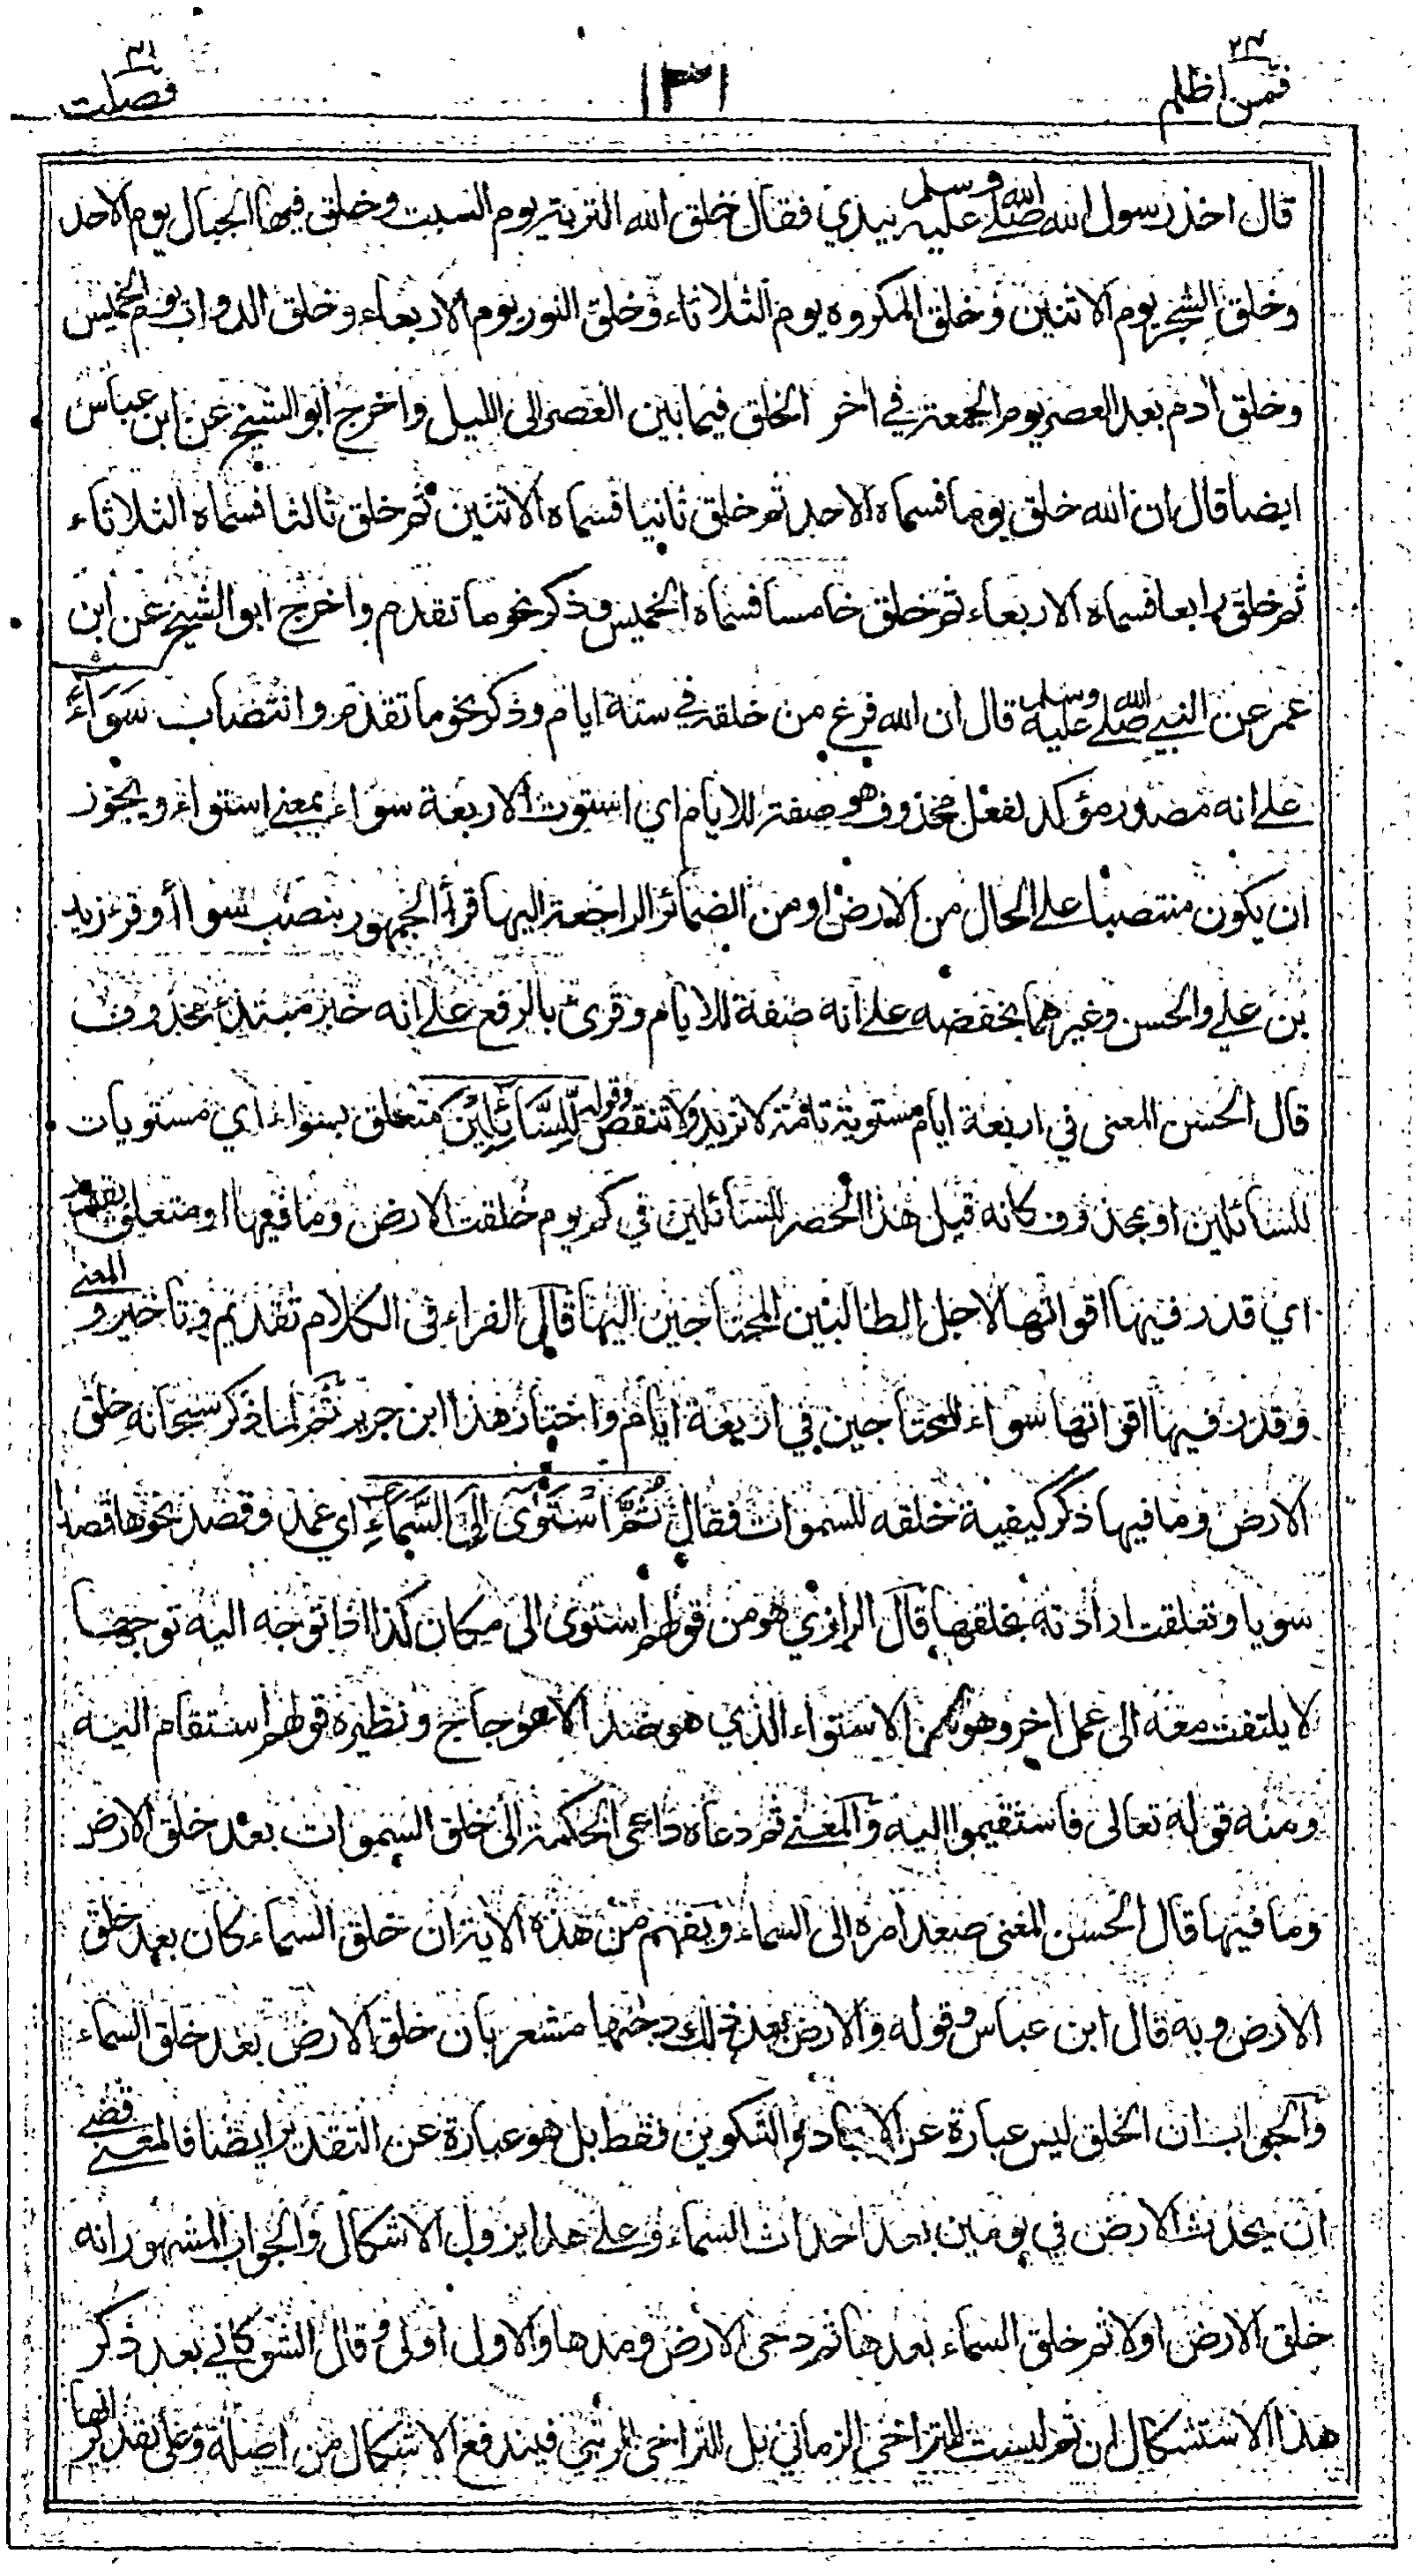 فمن اظلم ٢٤
١٣١
فصلت ٤١
قال اخذ رسول الله صلى الله عليه وسلم بيدي فقال خلق الله التربة يوم السبت وخلق فيها الجبال يوم الاحد
وخلق الشجر يوم الاثنين وخلق المكروه يوم الثلاثاء وخلق النور يوم الاربعاء وخلق الدواب يوم الخميس
وخلق ادم بعد العصر يوم الجمعة في اخر الخلق فيما بين العصر الى الليل واخرج ابو الشيخ عن ابن عباس
ايضا قال ان الله خلق يوما فسماه الاحد ثم خلق ثانيا فسماه الاثنين ثم خلق ثالثا فسماه الثلاثاء
ثم خلق رابعا فسماه الاربعاء ثم خلق خامسا فسماه الخميس وذكر نحو ما تقدم واخرج ابو الشيخ عن ابن
عمر عن النبي صلى الله عليه وسلم قال ان الله فرغ من خلقه في ستة ايام وذكر نحو ما تقدم وانتصاب سَوَآءً
على انه مصدر مؤكد لفعل محذوف هو صفة للايام اي استوت الاربعة سواء بمعنى استواء ويجوز
ان يكون منتصبا على الحال من الارض او من الضمائر الراجعة اليها قرأ الجمهور بنصب سواأ وقرء زيد
بن علي والحسن وغيرهما بخفضه على انه صفة للايام وقرئ بالرفع على انه خبر مبتدء محذوف
قال الحسن المعنى في اربعة ايام مستوية تامة لا تزيد ولا تنقص وقوله لِّلسَّآئِلِيْنَ متعلق بسواء اي مستويات
للسائلين او بمحذوف كانه قيل هذا الحصر للسائلين في كم يوم خلقت الارض وما فيها او متعلق بقدر
اي قدر فيها اقواتها لاجل الطالبين المحتاجين اليها قال الفراء في الكلام تقديم وتاخير والمعنى
وقدر فيها اقواتها سواء للمحتاجين في اربعة ايام واختار هذا ابن جرير ثم لما ذكر سبحانه خلق
الارض وما فيها ذكر كيفية خلقه للسموات فقال ثُمَّ اسْتَوٰى اِلَى السَّمَآءِ اي عمد وقصد نحوها قصدا
سويا وتعلقت ارادته بخلقها قال الرازي هو من قولهم استوى الى مكان كذا اذا توجه اليه توجها
لا يلتفت معه الى عمل اخر وهو من الاستواء الذي هو ضد الاعوجاج ونظيره قولهم استقام اليه
ومنه قوله تعالى فاستقيموا اليه والمعنى ثم دعاه داعي الحكمة الى خلق السموات بعد خلق الارض
وما فيها قال الحسن المعنى صعد امره الى السماء ويفهم من هذه الاية ان خلق السماء كان بعد خلق
الارض وبه قال ابن عباس وقوله والارض بعد ذلك دحٰها مشعر بان خلق الارض بعد خلق السماء
والجواب ان الخلق ليس عبارة عن الايجاد والتكوين فقط بل هو عبارة عن التقدير ايضا فالمعنى قضى
ان يحدث الارض في يومين بعد احداث السماء وعلى هذا يزول الاشكال والجواب المشهور انه
خلق الارض اولا ثم خلق السماء بعدها ثم دحى الارض ومدها والاول اولى وقال الشوكاني بعد ذكر
هذا الاستشكال ان ثم ليست للتراخى الزماني بل للتراخى الرتبي فيندفع الاشكال من اصله وعلى تقدير انها